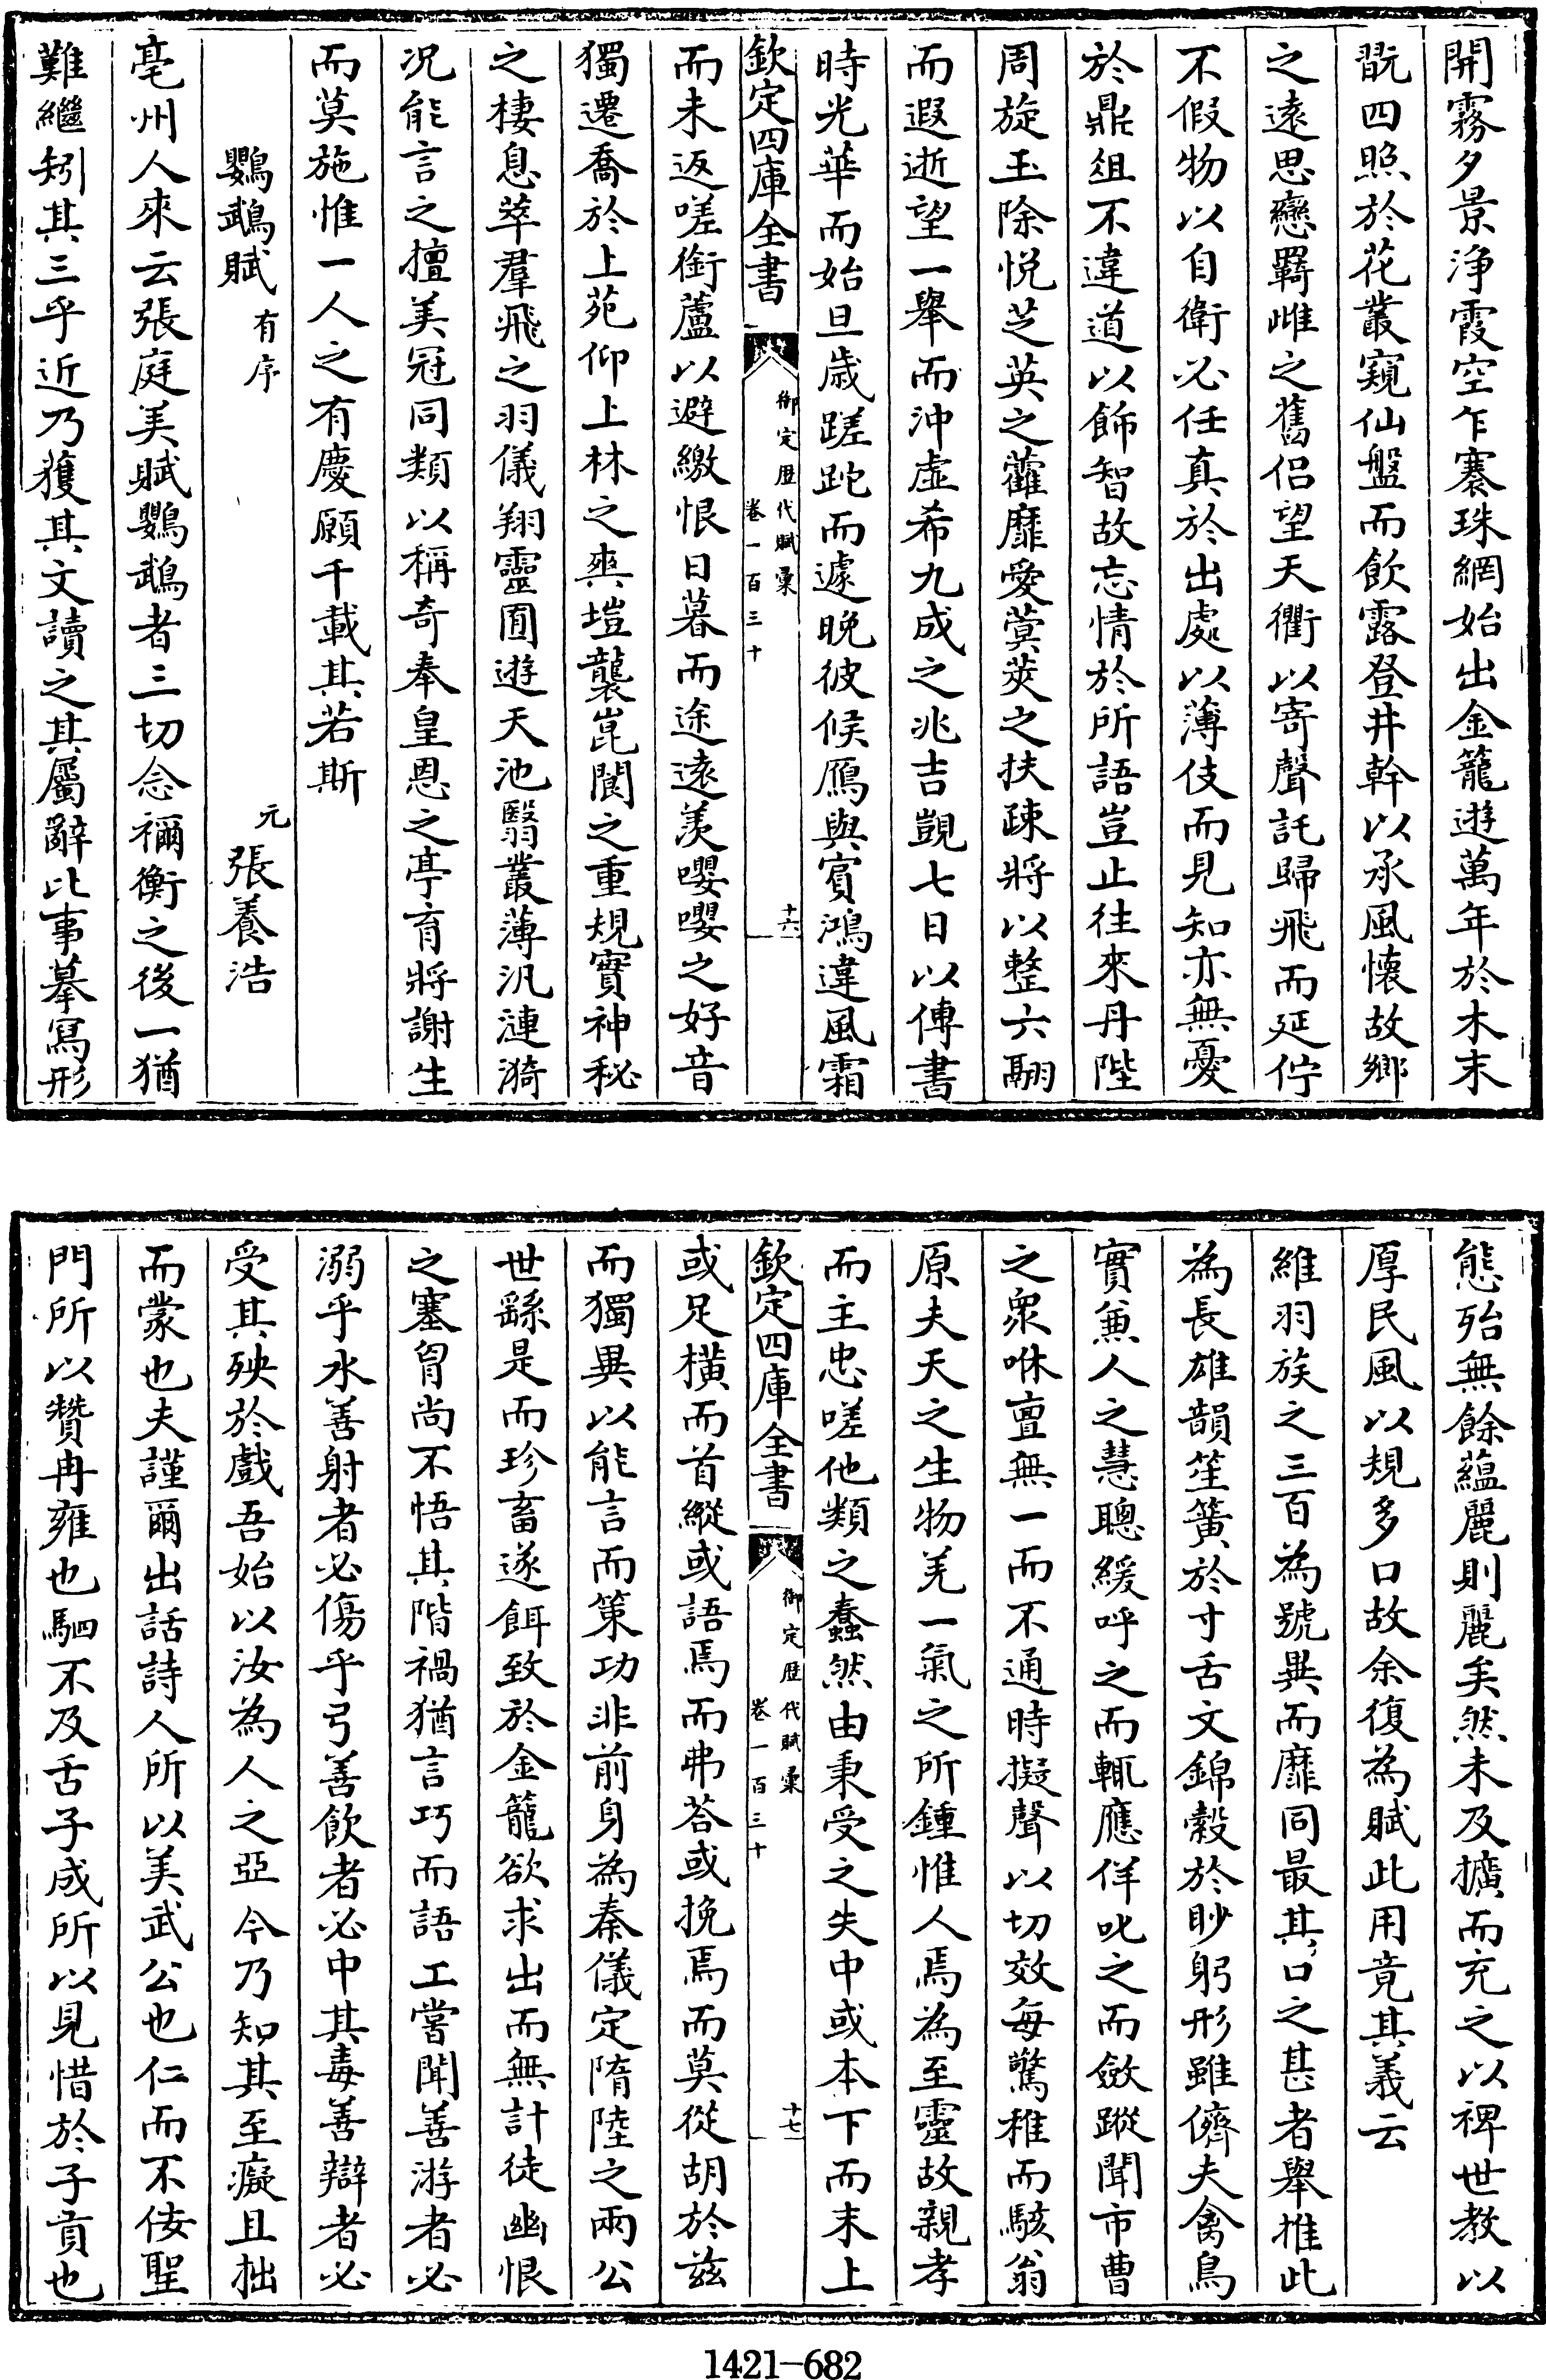 開霧夕景淨霞空乍褰珠網始出金籠遊萬年於木末
翫四照於花叢窺仙盤而飲露登井幹以承風懷故鄉
之遠思戀羇雌之舊侣望天衢以寄聲託歸飛而延佇
不假物以自衛必任真於出處以薄伎而見知亦無憂
於鼎俎不違道以飾智故忘情於所語豈止往來丹陛
周旋玉除悦芝英之藿靡愛蓂莢之扶疎將以整六翮
而遐逝望一舉而沖虚希九成之兆吉覬七日以傳書
時光華而始旦歳蹉跎而遽晚彼候鴈與賔鴻違風霜
欽定四庫全書
御定歴代賦彙
卷一百三十
十六
而未返嗟銜蘆以避繳恨日暮而途逺羨嚶嚶之好音
獨遷喬於上苑仰上林之爽塏襲崑閬之重規實神秘
之棲息萃羣飛之羽儀翔靈囿遊天池翳叢薄汎漣漪
况能言之擅美冠同類以稱奇奉皇恩之亭育將謝生
而莫施惟一人之有慶願千載其若斯
鸚鵡賦有序
元張養浩
亳州人來云張庭美賦鸚鵡者三切念禰衡之後一猶
難繼矧其三乎近乃獲其文讀之其屬辭比事摹寫形
態殆無餘藴麗則麗矣然未及擴而充之以裨世教以
厚民風以規多口故余復為賦此用竟其義云
維羽族之三百為號異而靡同最其口之甚者舉推此
為長雄韻笙簧於寸舌文錦縠於眇躬形雖儕夫禽鳥
實兼人之慧聰緩呼之而輒應佯叱之而斂蹤聞市曹
之衆咻亶無一而不通時擬聲以切效每驚稚而駭翁
原夫天之生物羌一氣之所鍾惟人焉為至靈故親孝
而主忠嗟他類之蠢然由秉受之失中或本下而末上
欽定四庫全書
御定歴代賦彙
卷一百三十
十七
或足横而首縱或語焉而弗荅或挽焉而莫從胡於兹
而獨異以能言而策功非前身為秦儀定隋陸之兩公
世繇是而珍畜遂餌致於金籠欲求出而無計徒幽恨
之塞胷尚不悟其階禍猶言巧而語工嘗聞善游者必
溺乎水善射者必傷乎弓善飲者必中其毒善辯者必
受其殃於戲吾始以汝為人之亞今乃知其至癡且拙
而蒙也夫謹爾出話詩人所以美武公也仁而不佞聖
門所以贊冉雍也駟不及舌子成所以見惜於子貢也
1421-682